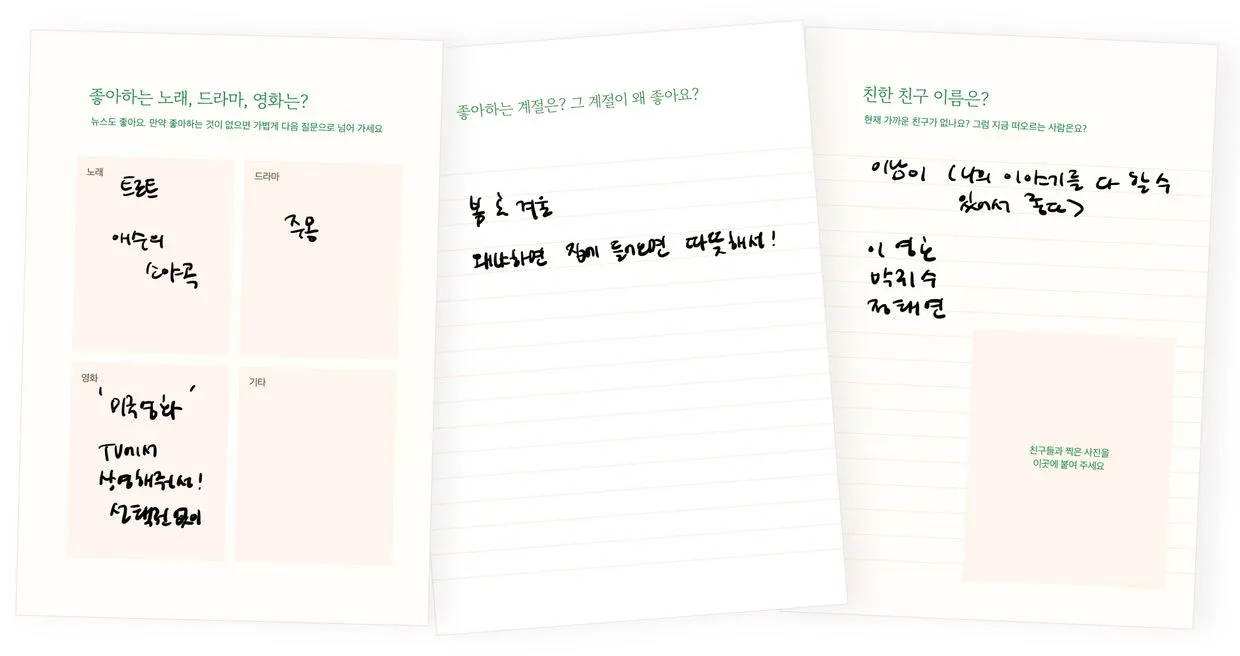 좋아하는 노래, 드라마, 영화는?
뉴스도 좋아요. 만약 좋아하는 것이 없으면 가볍게 다음 질문으로 넘어 가세요
노래
트로트
애수의
소야곡
드라마
주몽
영화
'미국영화'
TV에서
상영해줘서!
선택권 없이
기타
좋아하는 계절은? 그 계절이 왜 좋아요?
봄 한 겨울
왜냐하면 집에 들어오면 따뜻해서!
친한 친구 이름은?
현재 가까운 친구가 없나요? 그럼 지금 떠오르는 사람은요?
이남이 (나의 이야기를 다 할 수
있어서 좋다)
이영호
박지수
정태연
친구들과 찍은 사진을
이곳에 붙여 주세요